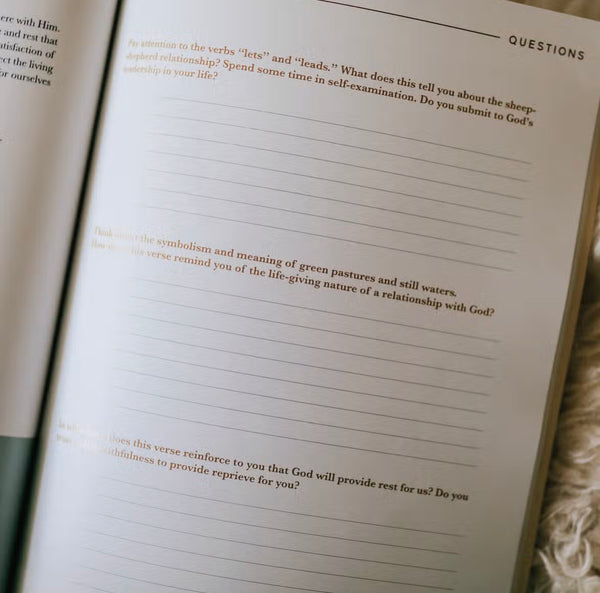 ere with Him.
and rest that
atisfaction of
ct the living
or ourselves
QUESTIONS
Pay attention to the verbs “lets” and “leads.” What does this tell you about the sheep-
shepherd relationship? Spend some time in self-examination. Do you submit to God’s
leadership in your life?
Think about the symbolism and meaning of green pastures and still waters.
How does this verse remind you of the life-giving nature of a relationship with God?
does this verse reinforce to you that God will provide rest for us? Do you
faithfulness to provide reprieve for you?